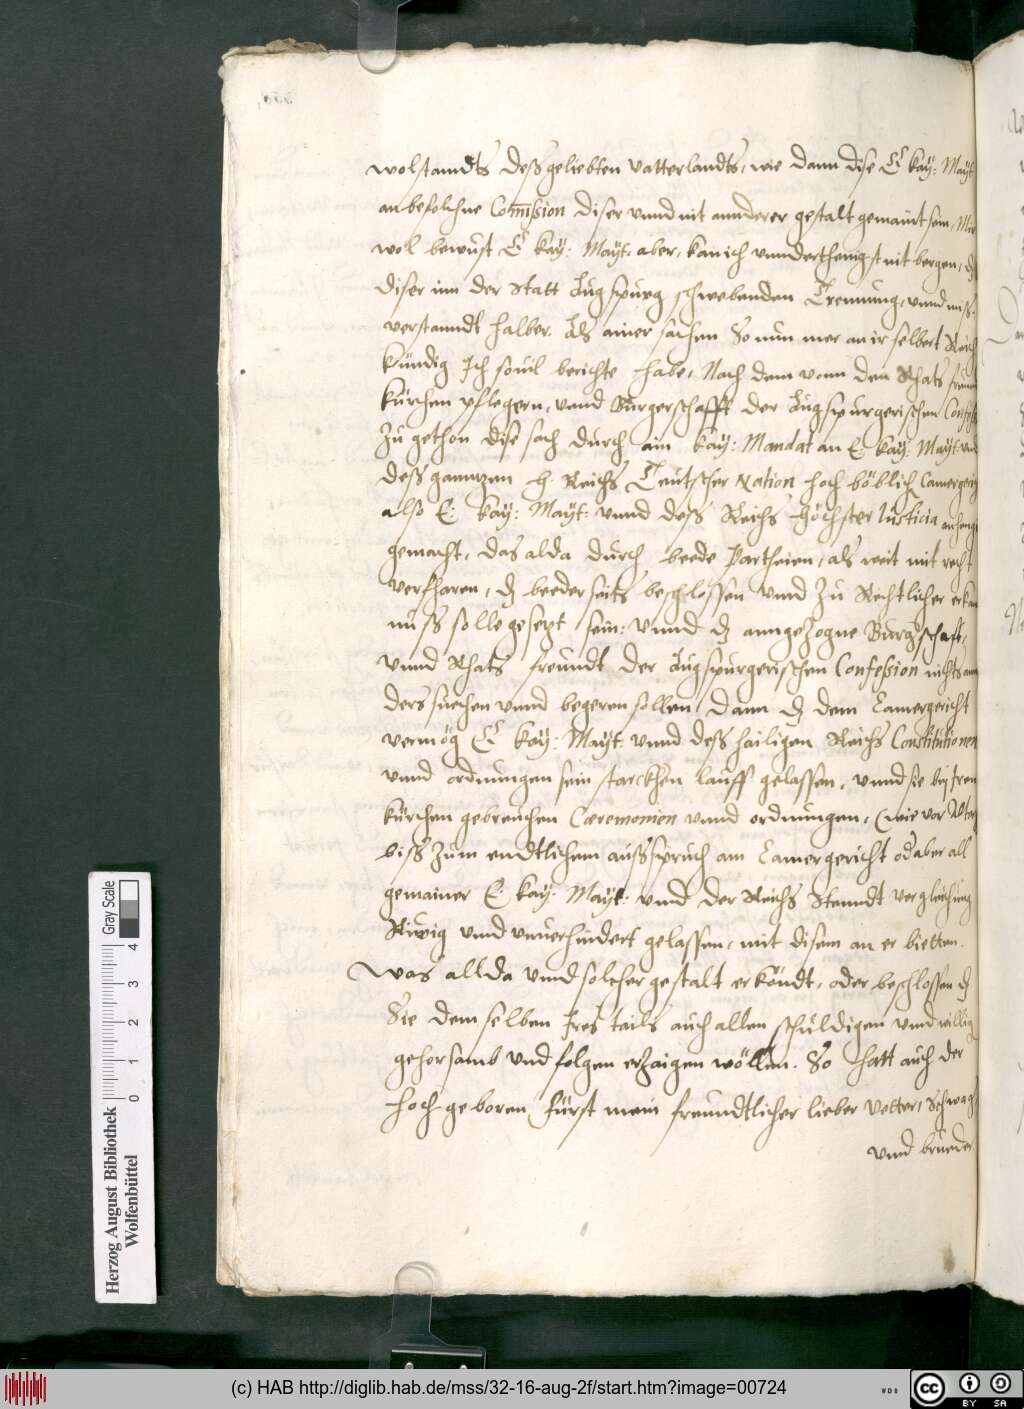 wolstanndts deß geliebten vatterlandts, wie dann dise E kay: Mayt
anbefolchne Com̄ission diser vnnd nit annderer gestalt gemaint sein, Mir
wol bewüst E kay: Mayt: aber, kan ich vnnderthenigst nit bergen,
diser inn der Statt Augspurg schwebenden Trennung, vnnd miß-
verstanndt halber. Als ainer sachen So nun mer an ir selbert Reich
kündig Ich souil berichte habe, Nach dem vonn den Rhats freun
kürchen pflegern, vnnd Burgerschafft der Augspurgerischen Confess
Zu gethon dise sach durch ain kay: Mandat an E: kay: Mayt: vnd
deß gannzen h. Reichs Teütscher Nation hoch löblich Camergerig
also E: kay: Mayt: vnnd deß Reichs höchster Iusticia anhengi
gemacht, das alda durch beede Partheien, als weit mit recht
verfharen, dz beederseits beschlossen vnnd Zu Rechtlicher erkan
nuß solle gesezt sein: vnnd dz anngezogne Burgschafft,
vnnd Rhats freundt der Augspurgerischen Confession nichts ann
ders suechen vnnd begeren sollen, dann dz dem Camergericht
vermög E kay: Mayt: vnnd deß hailigen Reichs Constitutionen
vnnd ordnungen sein starckhen lauff gelassen, vnnd sie bej Iren
kürchen gebreuchen Cæremonien vnnd ordnungen, (wie vor Alter)
biß Zum endtlichem außspruch am Camergericht od aber all
gemainer E: kay: Mayt: vnnd der Reichs Stenndt vergleichung
Rüwig vnnd vnuerhindert gelassen, mit disem an er bietten.
Was allda vnnd solcher gestalt erkündt, oder beschlossen dz
Sie demselben Ires tails auch allen schuldigen vnnd willig
gehorsamb vnd folgen erzaigen wöllen. So hatt auch der
hoch geboren Fürst mein freundtlicher lieber Vetter, Schwag
vnnd brueder
Gray Scale
4
3
2
1
0
Herzog August Bibliothek
Wolfenbüttel
(c) HAB http://diglib.hab.de/mss/32-16-aug-2f/start.htm?image=00724
WDB
cc
BY SA